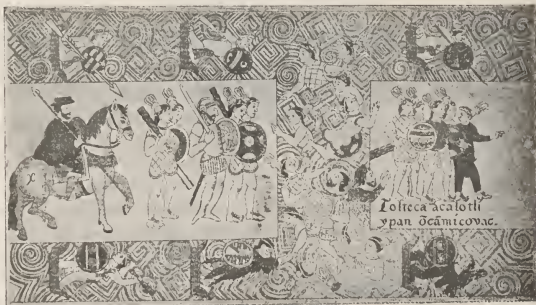 Tolteca acalotli
ypan ōcāmicovac.